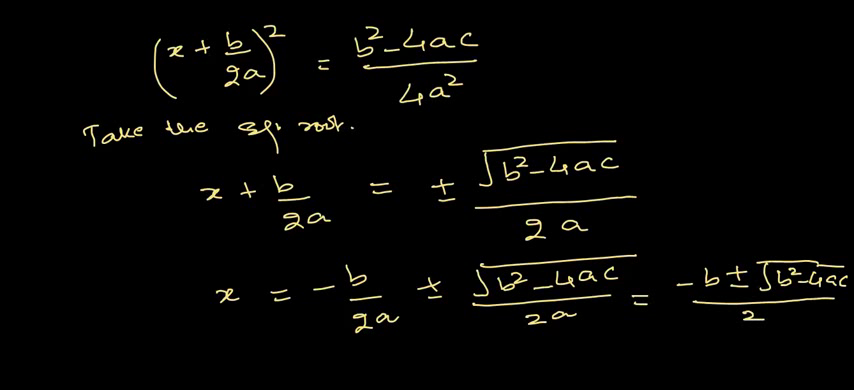 (x + b/2a)² = b² - 4ac / 4a²
Take the sq. root.
x + b/2a = ± √b² - 4ac / 2a
x = - b/2a ± √b² - 4ac / 2a = -b ± √b² - 4ac / 2